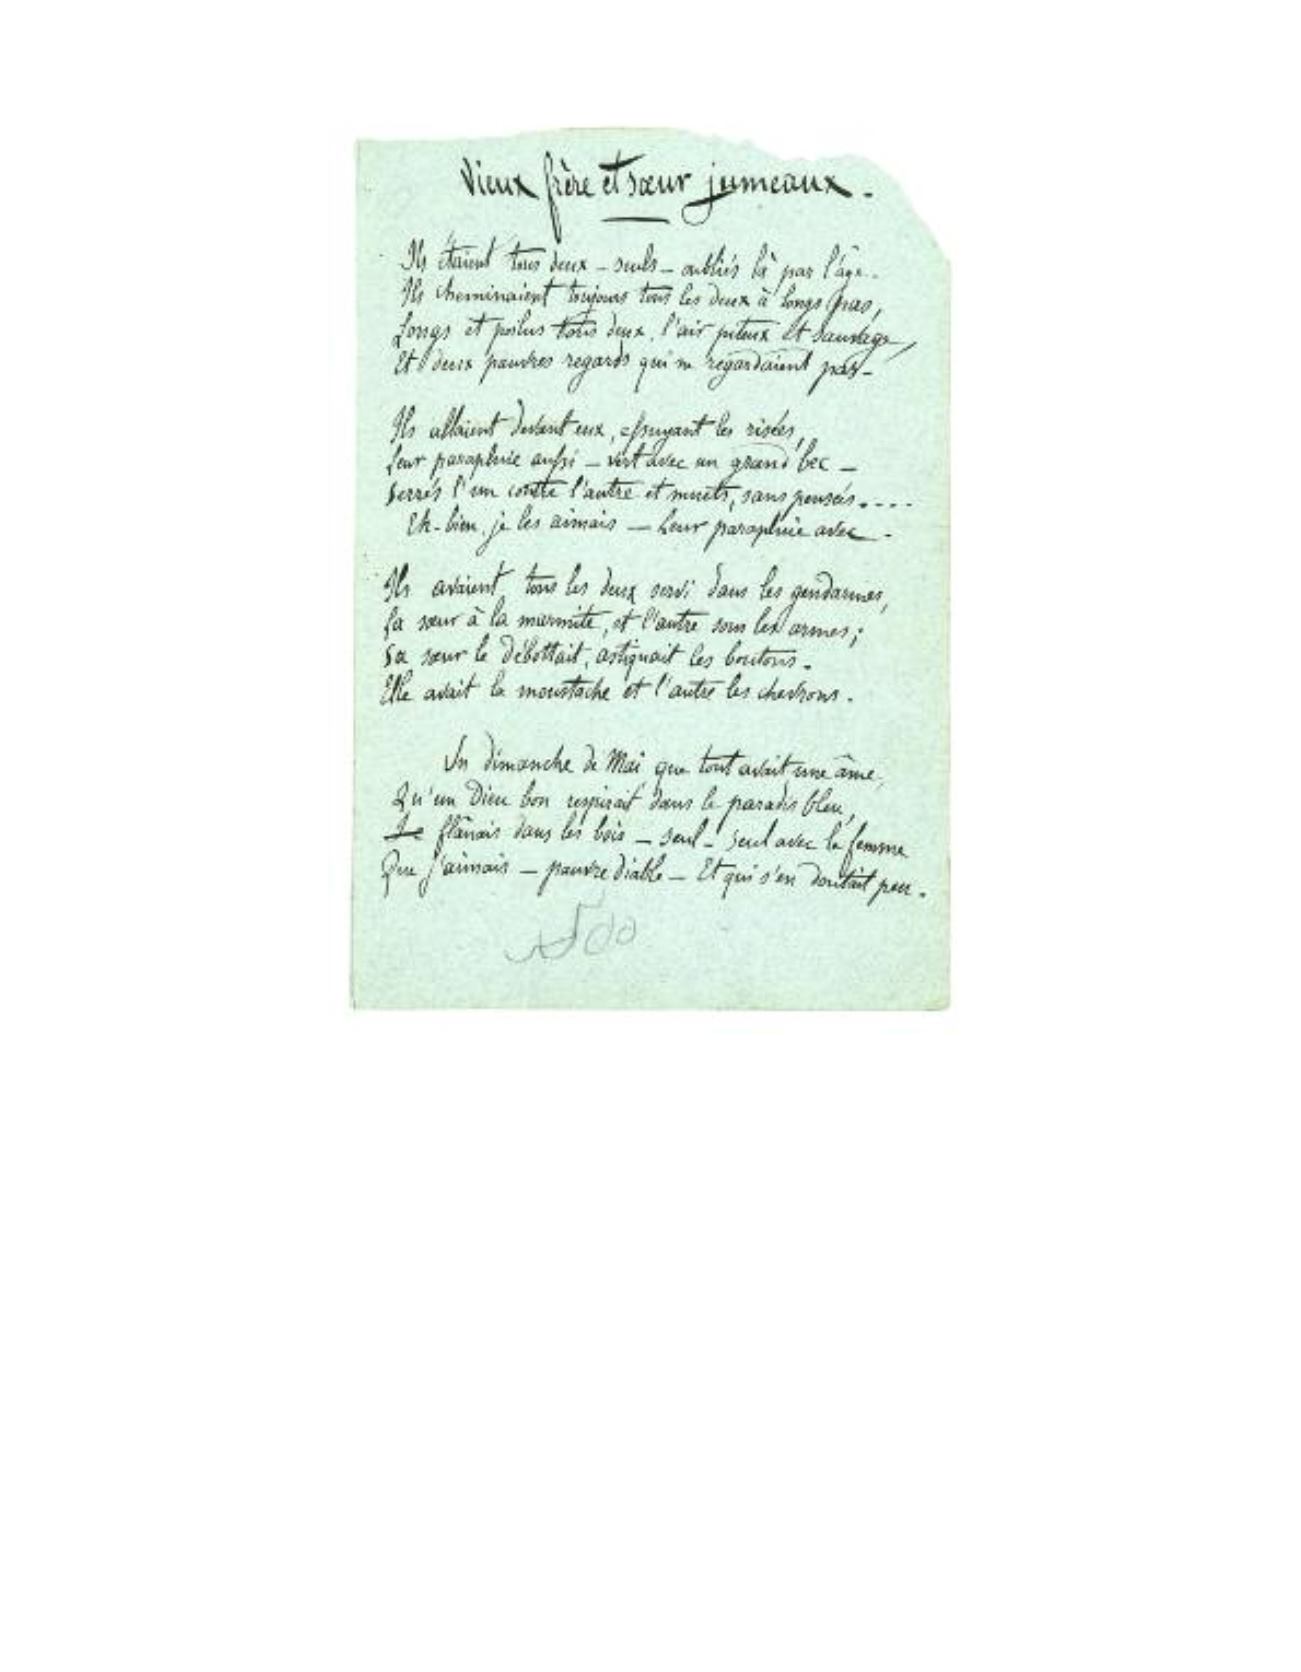 Vieux frère et sœur jumeaux.
Ils étaient tous deux — seuls — oubliés là par l'âge.
Ils cheminaient toujours tous les deux à longs pas,
Longs et poilus tous deux, l'air piteux et sauvage,
Et deux pauvres regards qui ne regardaient pas —
Ils allaient devant eux, essuyant les risées,
Leur parapluie aussi — vert avec un grand bec —
Serrés l'un contre l'autre et muets, sans pensées....
Eh-bien, je les aimais — Leur parapluie avec —.
Ils avaient tous les deux servi dans les gendarmes,
La sœur à la marmite, et l'autre sous les armes;
Sa sœur le débottait, astiquait les boutons.
Elle avait la moustache et l'autre les chevrons.
Un dimanche de Mai que tout avait une âme,
Qu'un Dieu bon respirait dans le paradis bleu,
Je flânais dans les bois — seul — seul avec la femme
Que j'aimais — pauvre diable — Et qui s'en doutait peu.